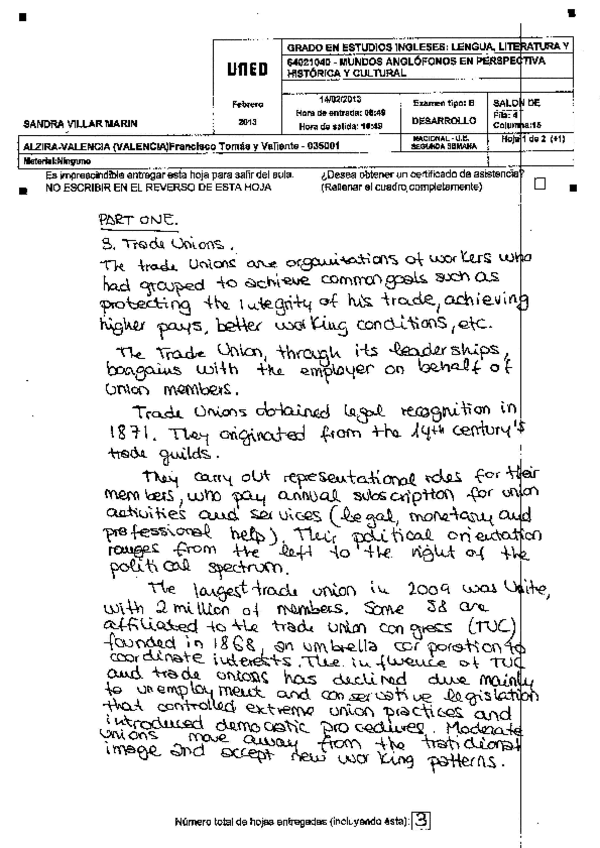 UNED
GRADO EN ESTUDIOS INGLESES: LENGUA, LITERATURA Y
64021040 - MUNDOS ANGLÓFONOS EN PERSPECTIVA
HISTÓRICA Y CULTURAL
SANDRA VILLAR MARIN
Febrero
2013
14/02/2013
Hora de entrada: 08:49
Hora de salida: 10:49
Examen tipo: B
DESARROLLO
SALON DE
Fila: 4
Columna:15
ALZIRA-VALENCIA (VALENCIA)Francisco Tomás y Valiente - 035001
NACIONAL - U.E.
SEGUNDA SEMANA
Hoja 1 de 2 (+1)
Material:Ninguno
Es imprescindible entregar esta hoja para salir del aula.
NO ESCRIBIR EN EL REVERSO DE ESTA HOJA
¿Desea obtener un certificado de asistencia?
(Rellenar el cuadro completamente)
PART ONE.
3. Trade Unions.
The trade Unions are organitations of workers who
had grouped to achieve common goals such as
protecting the integrity of his trade, achieving
higher pays, better working conditions, etc.
The Trade Union, through its leaderships,
bargains with the employer on behalf of
Union members.
Trade Unions obtained legal recognition in
1871. They originated from the 14th century's
trade guilds.
They carry out representational roles for their
members, who pay annual subscription for union
activities and services (legal, monetary and
professional help). Their political orientation
ranges from the left to the right of the
political spectrum.
The largest trade union in 2009 was Unite,
with 2 million of members. Some 58 are
affiliated to the trade union congress (TUC)
founded in 1868, an umbrella corporation to
coordinate interests. The influence of TUC
and trade unions has declined due mainly
to unemployment and conservative legislation
that controlled extreme union practices and
introduced democratic procedures. Moderate
unions move away from the traditional
image and accept new working patterns.
Número total de hojas entregadas (incluyendo ésta): 3